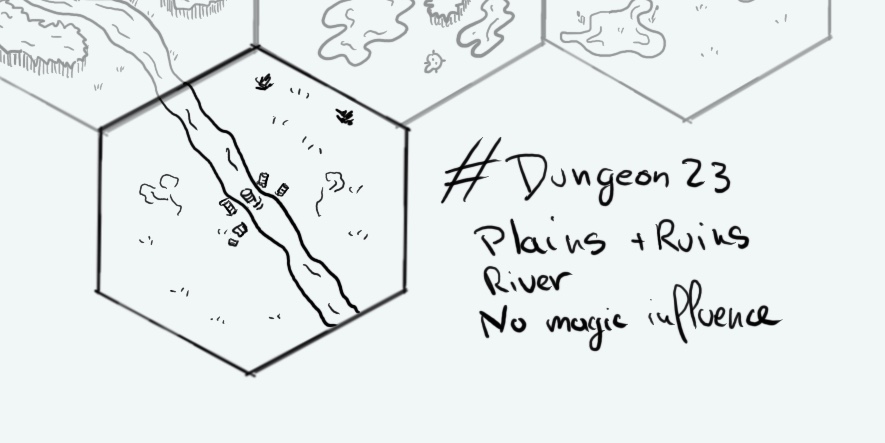 # Dungeon 23
Plains + Ruins
River
No magic influence